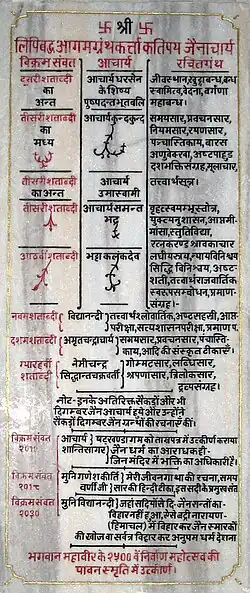 卐 श्री 卐
लिपिबद्ध आगमग्रंथकर्त्ता कतिपय जैनाचार्य
विक्रम संवत आचार्य रचितग्रंथ
दूसरी शताब्दी का अन्त आचार्य धरसेन के शिष्य पुष्पदन्त भूतबलि जीवस्थान, खुद्दाबन्ध, बन्ध स्वामित्व, वेदना, वर्गणा महाबन्ध।
तीसरी शताब्दी का मध्य आचार्य कुन्दकुन्द समयसार, प्रवचनसार, नियमसार, रयणसार, पञ्चास्तिकाय, बारस अणुवेक्खा, अष्टपाहुड दशभक्तिसंग्रह, मूलाचार,
तीसरी शताब्दी का अन्त आचार्य उमास्वामी तत्वार्थसूत्र।
तीसरी शताब्दी आचार्य समन्त भद्र वृहत्स्वयम्भूस्तोत्र, युक्त्यनुशासन, आप्तमीमांसा, स्तुतिविद्या, रत्नकरण्ड श्रावकाचार
आठवीं शताब्दी भट्टाकलंकदेव लघीयस्त्रय, न्यायविनिश्चय सिद्धि विनिश्चय, अष्टशती, तत्वार्थ राजवार्तिक स्वरूपसम्बोधन, प्रमाण संग्रह।
नवम शताब्दी विद्यानन्दी तत्वार्थश्लोकवार्तिक, अष्टसहस्री, आप्तपरीक्षा, सत्यशासनपरीक्षा, प्रमाण प.
दशम शताब्दी अमृतचन्द्राचार्य समयसार, प्रवचनसार, पंचास्तिकाय, आदि की संस्कृत टीकाएँ।
ग्यारहवीं शताब्दी नेमीचन्द्र सिद्धान्तचक्रवर्ती गोम्मटसार, लब्धिसार, क्षपणासार, त्रिलोकसार, द्रव्यसंग्रह।
नोट- इनके अतिरिक्त सैकड़ों और भी दिगम्बर जैन आचार्य हुये और उन्होंने सैंकड़ों दिगम्बर जैन ग्रन्थों की रचनाएँ कीं।
विक्रम संवत आचार्य शान्तिसागर षटखण्डागम को ताम्रपत्र में उत्कीर्ण कराया जैन धर्म का आराधक ही जिन मंदिर में भक्ति का अधिकारी है।
विक्रम संवत मुनि गणेश कीर्ति वर्णी जी मेरी जीवन गाथा की रचना, समयसार की हिन्दी टीका, इस सदी के प्रमुख संत
विक्रम संवत २०३० मुनि विद्यानन्दी जहां सदियों से दि. जैन संतों का विहार नहीं हुआ, ऐसे बद्रीनारायण (हिमाचल) में विहार कर जैन स्मारकों की खोज व सर्वत्र विहार कर अनुपम धर्म देशना
भगवान महावीर के २५०० वें निर्वाण महोत्सव की
पावन स्मृति में उत्कीर्ण।